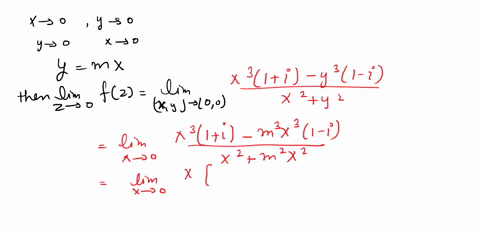 x→0 , y→0
y→0 x→0
y = mx
then lim z→0 f(z) = lim (x,y)→(0,0) x³(1+i) − y³(1−i) / x² + y²
= lim x→0 x³(1+i) − m³x³(1−i) / x² + m²x²
= lim x→0 x [